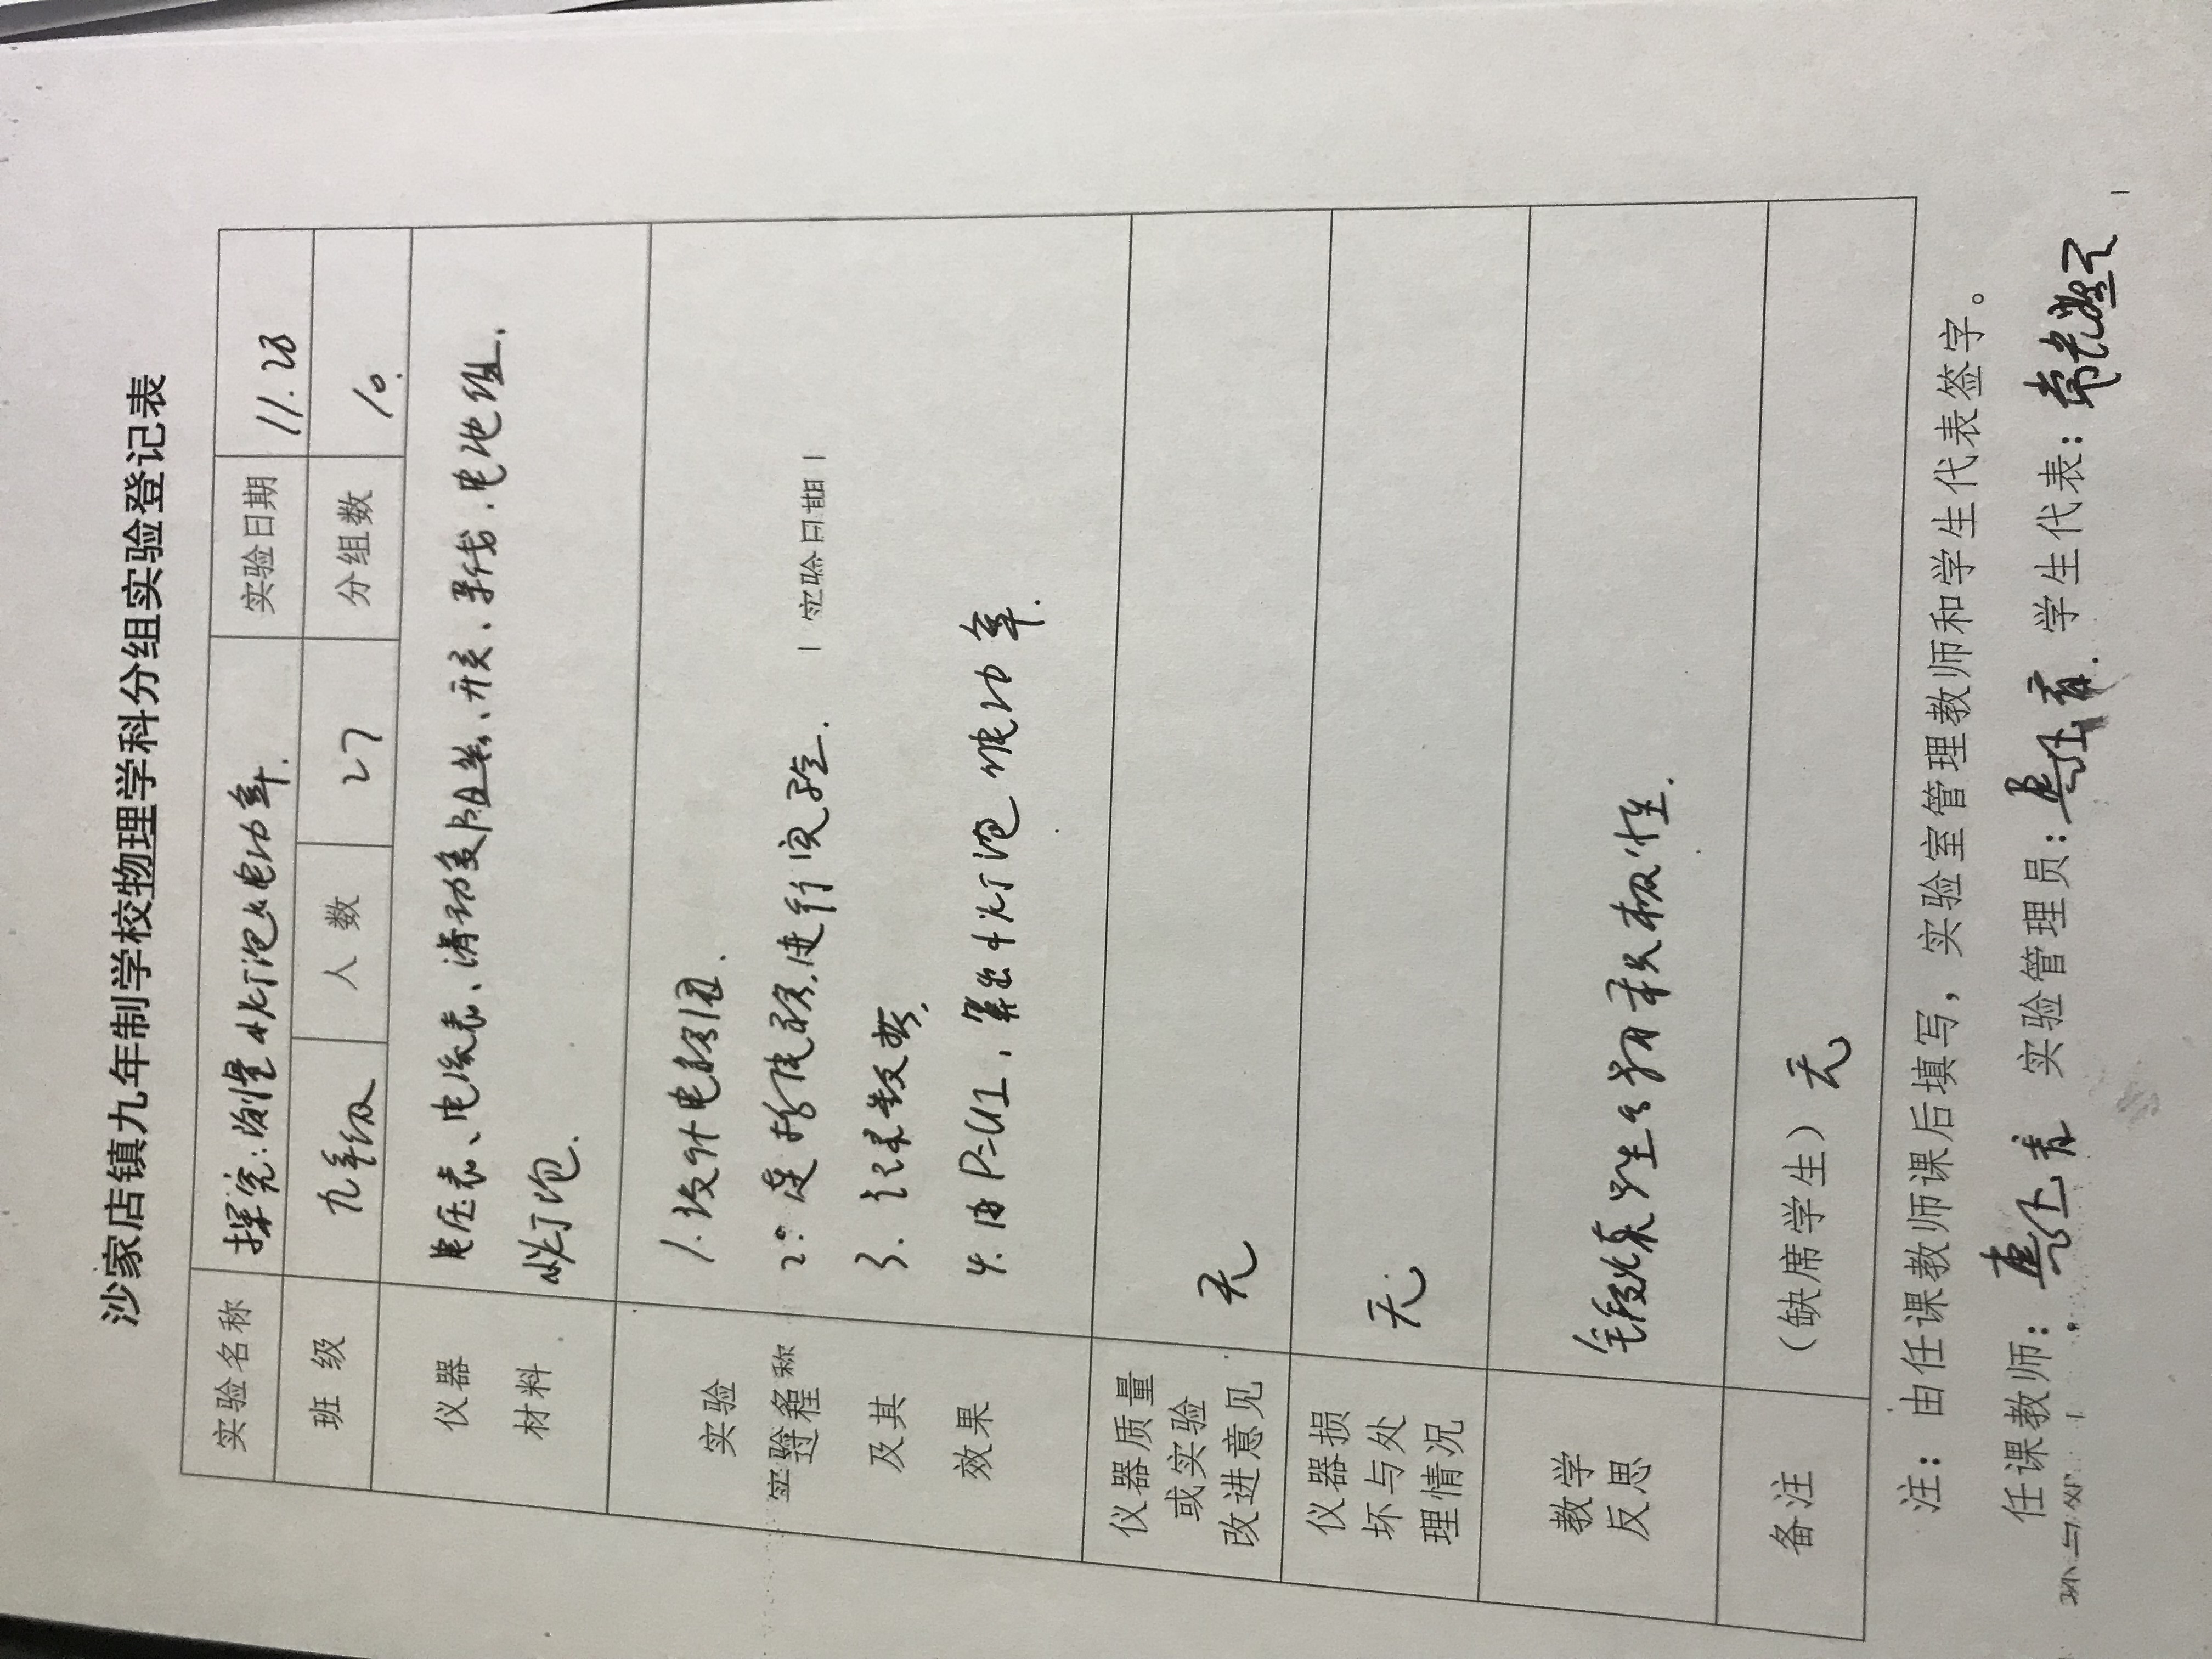 沙家店镇九年制学校物理学科分组实验登记表
实验名称 探究:测量小灯泡的电功率. 实验日期 11.28
班 级 九年级 人 数 27 分组数 10.
仪器 电压表、电流表、滑动变阻器、开关、导线.电池组.
材料 小灯泡.
实验 1.设计电路图.
过程 2°连接电路,进行实验.
及其 3.记录数据,
效果 4.由P=UI,算出小灯泡的功率.
仪器质量
或实验 无
改进意见
仪器损
坏与处 无
理情况
教学
反思 锻炼学生的积极性.
备注 (缺席学生) 无
注:由任课教师课后填写,实验室管理教师和学生代表签字。
任课教师: 实验管理员: 学生代表: